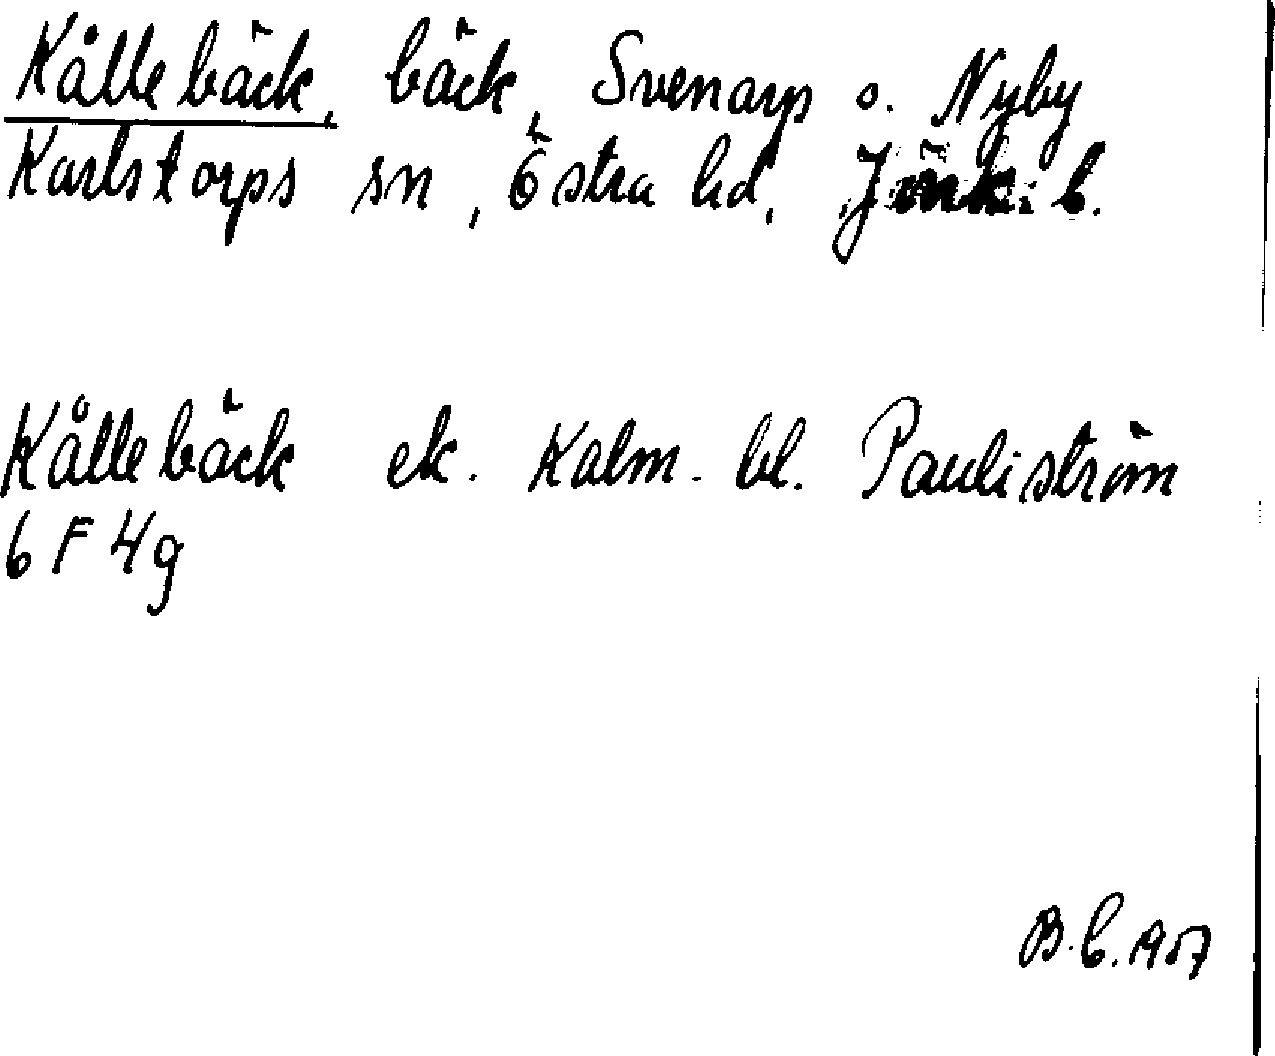 Kållebäck, bäck, Svenarp o. Nyby
Karlstorps sn, Östra hd, Jönk. l.
Kållebäck ek. Kalm. bl. Pauliström
6 F 4g
B.L. 1957